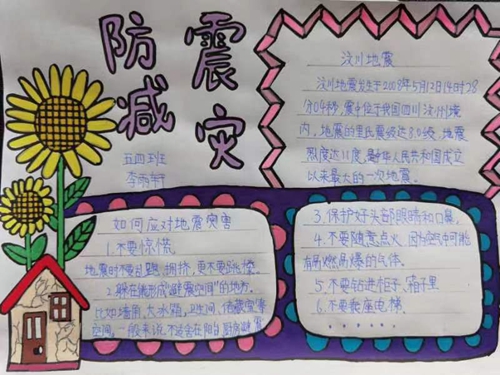 防震
减灾
五四班
汶川地震
汶川地震发生于2008年5月12日14时28
分04秒,震中位于我国四川汶川境
内,地震的里氏震级达8.0级,地震
烈度达11度,是中华人民共和国成立
以来最大的一次地震。
如何应对地震灾害
1.不要惊慌
地震时不要乱跑,拥挤,更不要跳楼
2.躲在能形成"避震空间"的地方。
比如墙角,大水箱,卫生间,储藏室等
空间,一般来说,不适合在阳台
3.保护好头部眼睛和口鼻。
4.不要随意点火,因为空气中可能
有易燃易爆的气体。
5.不要钻进柜子,箱子里
6.不要乘座电梯.
......